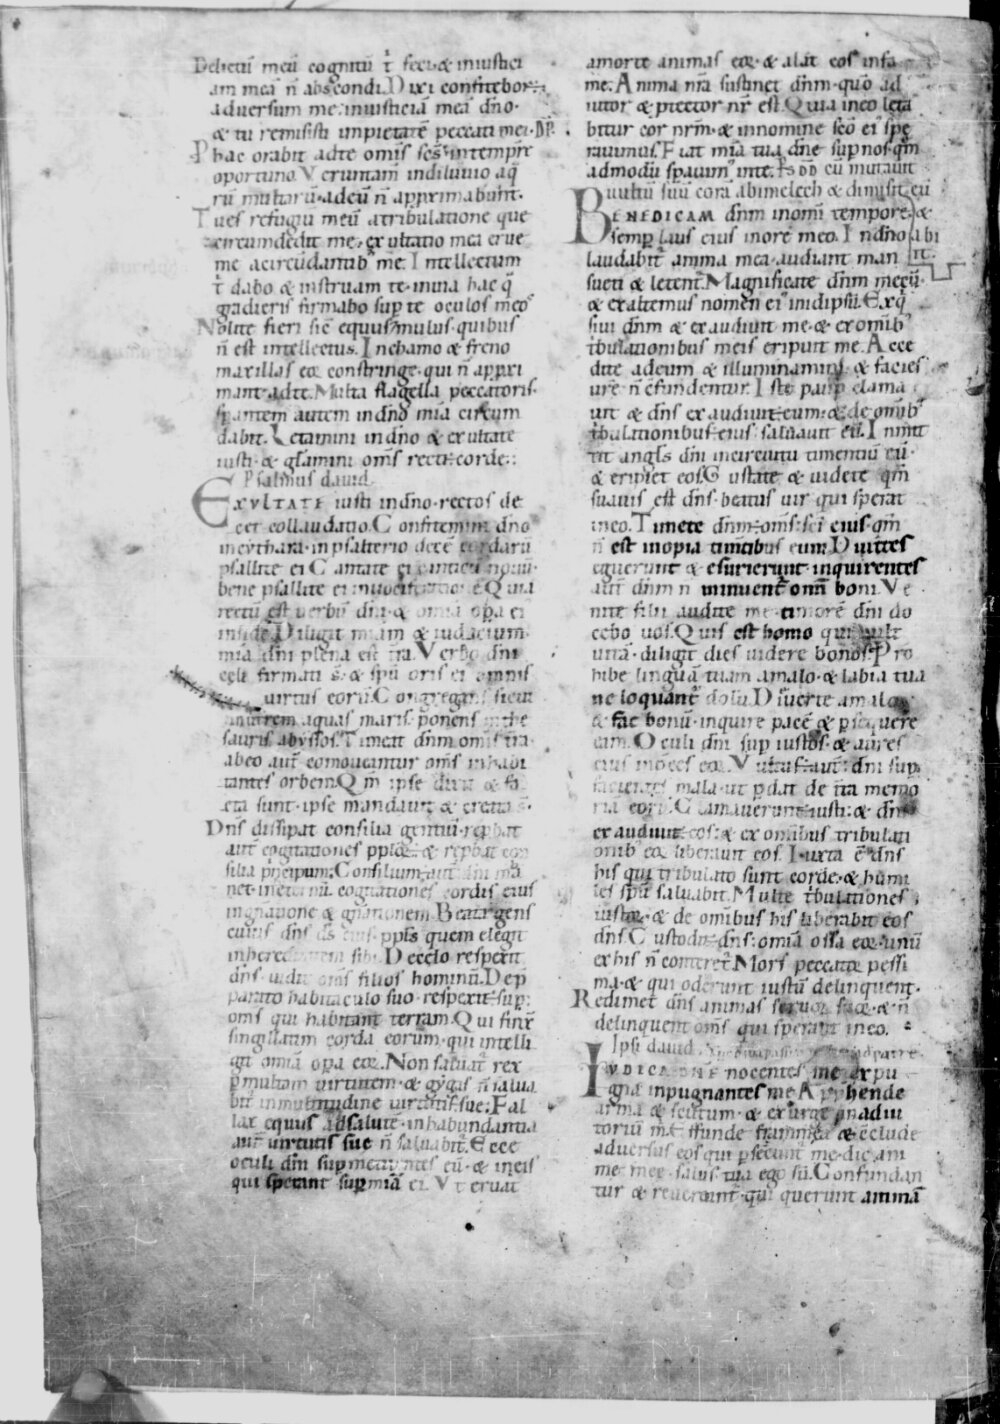 Delictū meū cognitū t̄ feci · & iniustici
am meā n̄ abscondi. Dixi confitebor
adversum me iniusticiā meā dn̄o ·
& tu remisisti impietatē peccati mei · DP̄.
P hac orabit adte om̄is sc̄s · intempr̄e
oportuno. Veruntam̄ indiluvio aq̄
rū multarū · adeū n̄ approximabunt.
Tu es refugiū meū atribulatione que
circumdedit me · exultatio mea erue
me acircūdantib; me. Intellectum
t̄ dabo & instruam te · inuia hac q̄
gradieris firmabo sup te oculos meos
Nolite fieri sic̄ equus & mulus · quibus
n̄ est intellectus. Inchamo & freno
maxillas eoꝝ constringe · qui n̄ approxi
mant · adte. Multa flagella peccatoris ·
sperantem autem indn̄o mīa circum
dabit. Letamini indn̄o & exultate
iusti · & gl̄amini om̄s recti corde ::
Psalmus david
EXVLTATE iusti indn̄o · rectos de
cet collaudatio. Confitemini dn̄o
incythara · inpsalterio decē cordarū
psallite ei Cantate ei canticū novū
bene psallite ei inuociferatione. Quia
rectū est verbū dn̄i · & om̄ia opa ei
infide. Diligit mīam & iudicium
mīa dn̄i plena est t̄ra. Verbo dn̄i
celi firmati s̄ · & spū oris ei omnis
virtus eorū. Congregans sicut
inutrem aquas maris · ponens inthe
sauris abyssos. Timeat dn̄m om̄is t̄ra
abeo aut̄ comoveantur om̄s inhabi
tantes orbem. Qm̄ ipse dixit & fa
cta sunt · ipse mandavit & creata s̄.
Dn̄s dissipat consilia gentiū · reprobat
aut̄ cogitationes pploꝝ · & reprobat con
silia principum. Consilium aut̄ dn̄i ma
net · ineternū cogitationes cordis eius
ingn̄atione & gn̄ationem. Beata gens
cuius dn̄s d̄s eius · ppl̄s quem elegit
inhereditatem sibi. Decelo respexit
dn̄s · vidit om̄s filios hominū. Dep̄
parato habitaculo suo · respexit sup
om̄s qui habitant terram. Qui finx̄
singillatim corda eorum · qui intelli
git om̄ia opa eoꝝ. Non saluat̄ rex
p multam virtutem · & gygas n̄ salua
bit̄ inmultitudine virtutis sue. Fal
lax equus adsalutē · inhabundantia
aut̄ virtutis sue n̄ saluabit̄. Ecce
oculi dn̄i sup metuentes eū · & ineis
qui sperant sup mīa ei. Vt eruat
amorte animas eoꝝ · & alat eos infa
me. Anima nr̄a sustinet dn̄m · quo ad
iutor & ptector nr̄ est. Quia ineo leta
bitur cor nrm̄ · & innomine sc̄o ei spe
ravimus. Fiat mīa tua dn̄e sup nos · qm̄
admodū speravim; inte. Ps DD cū mutavit
vultū suū corā abimelech & dimisit eū
BENEDICAM dn̄m inomi tempore · &
semp laus eius inore meo. Indn̄o
laudabit̄ anima mea · audiant man
sueti & letent̄. Magnificate dn̄m mecū ·
& exaltemus nomen ei inidipsū. Exq̄
sivi dn̄m & exaudivit me · & ex omīb;
t̄bulationibus meis eripuit me. Acce
dite adeum & illuminamini · & facies
ur̄e n̄ c̄fundentur. Iste paup clama
vit & dn̄s exaudivit eum · & de omīb;
t̄bulationibus eius saluauit eū. Inmit
tit angl̄s dn̄i incircuitu timentiū eū ·
& eripiet eos. Gustate & videte qm̄
suavis est dn̄s · beatus vir qui sperat
ineo. Timete dn̄m om̄s sc̄i eius · qm̄
n̄ est inopia timētibus eum. Divites
eguerunt & esurierunt · inquirentes
aut̄ dn̄m n̄ minuent̄ omī boni. Ve
nite filii audite me · timorē dn̄i do
cebo vos. Quis est homo qui vult
vitā · diligit dies videre bonos. Pro
hibe linguā tuam amalo · & labia tua
ne loquant̄ dolū. Diverte amalo
& fac bonū · inquire pacē & psequere
eam. Oculi dn̄i sup iustos · & aures
eius inp̄ces eoꝝ. Vultus aut̄ dn̄i sup
facientes mala · ut pdat de t̄ra memo
ria eorū. Clamaverunt iusti · & dn̄s
exaudivit eos · & ex omībus tribulati
onib; eoꝝ liberavit eos. Iuxta ē dn̄s
his qui tribulato sunt corde · & humi
les spū saluabit. Multe t̄bulationes
iustoꝝ · & de omībus his liberabit eos
dn̄s. Custodit dn̄s om̄ia ossa eoꝝ · unū
ex his n̄ conteret̄. Mors peccatoꝝ pessi
ma · & qui oderunt iustū delinquent ·
Redimet dn̄s animas servoꝝ suoꝝ · & n̄
delinquent om̄s qui sperant ineo.
Ipsi david
IVDICA DN̄E nocentes me · expu
gna inpugnantes me. Apphende
arma & scutum · & exurge inadiu
toriū m̄. Effunde frameā & c̄clude
adversus eos qui psecunt̄ me · dic ani
me mee · salus tua ego sū. Confundan
tur & revereant̄ · qui querunt animā